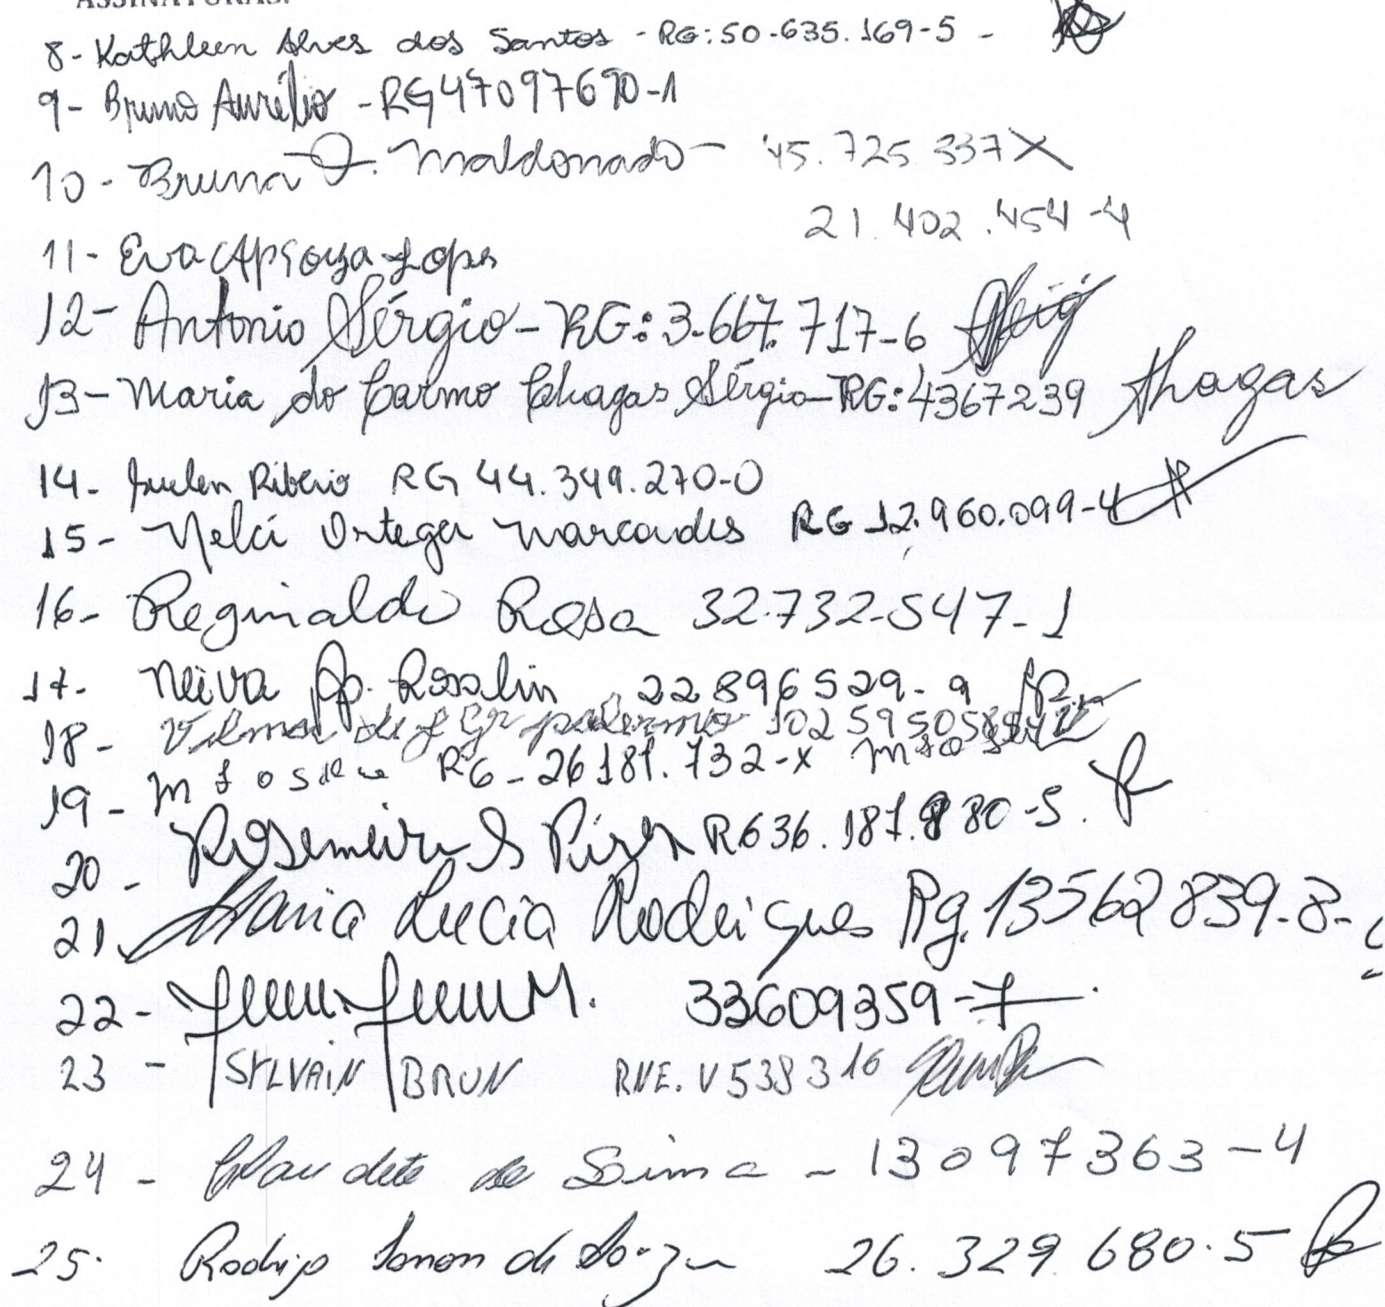 ASSINATURAS:
8- Kathleen Alves dos Santos - RG: 50-635.169-5 -
9- Bruno Aurélio - RG 47097690-1
10- Bruna J. Maldonado - 45.725.337X
21.402.454-4
11- Eva Ap Lopes
12- Antonio Sérgio - RG: 3-667.717-6
13- Maria do Carmo Chagas Sérgio - RG: 4367239 Chagas
14- Ribeiro RG 44.349.270-0
15- Nelci Ortega RG 12.960.099-4
16- Reginaldo Rosa 32.732-547-1
17- Neiva Ap. Rosalin 22896529-9
18- Vilma de palermo
19- RG-26181.732-X
20- Rosemeire S RG 36.187.980-5.
21 Maria Lucia Rodrigues Rg. 13562839-8-
22- M. 33609359-7
23 - SYLVAIN BRUN RNE. V538316
24 - Claudete de - 13097363-4
25. Rodrigo de Souza 26.329.680.5